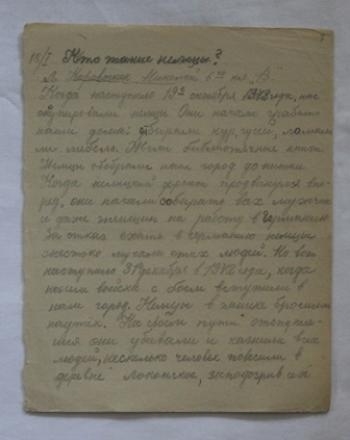 15/I Кто такие немцы?
Николай 6го кл. "В"
Когда наступило 19е октября 1942 года, нас
оккупировали немцы. Они начали грабить
наши дома, отбирали кур, гусей, ломали
мебель. Жгли библиотечные книги
Немцы обобрали наш город до нитки.
Когда немецкий фронт продвинулся впе-
ред, они начали собирать всех мужчин
и даже женщин на работу в Германию
За отказ ехать в Германию немцы
жестоко мучали этих людей. Но вот
наступило декабря 1942 года, когда
наши войска с боем вступили в
наш город. Немцы в панике бросились
наутек. На своём пути отступле-
ния они убивали и казнили всех
людей, несколько человек повесили в
деревне заподозрив их